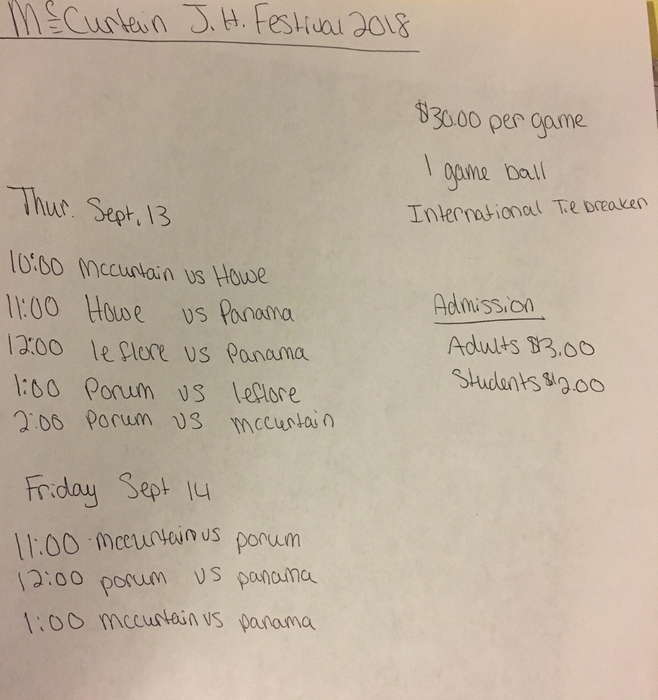 McCurtain J.H. Festival 2018
$30.00 per game
1 game ball
International Tie breaker
Thur. Sept. 13
10:00 Mccurtain vs Howe
11:00 Howe vs Panama
12:00 leflore vs Panama
1:00 Porum vs leflore
2:00 Porum vs mccurtain
Admission
Adults $3.00
Students $2.00
Friday Sept 14
11:00 mccurtain vs porum
12:00 porum vs panama
1:00 mccurtain vs panama